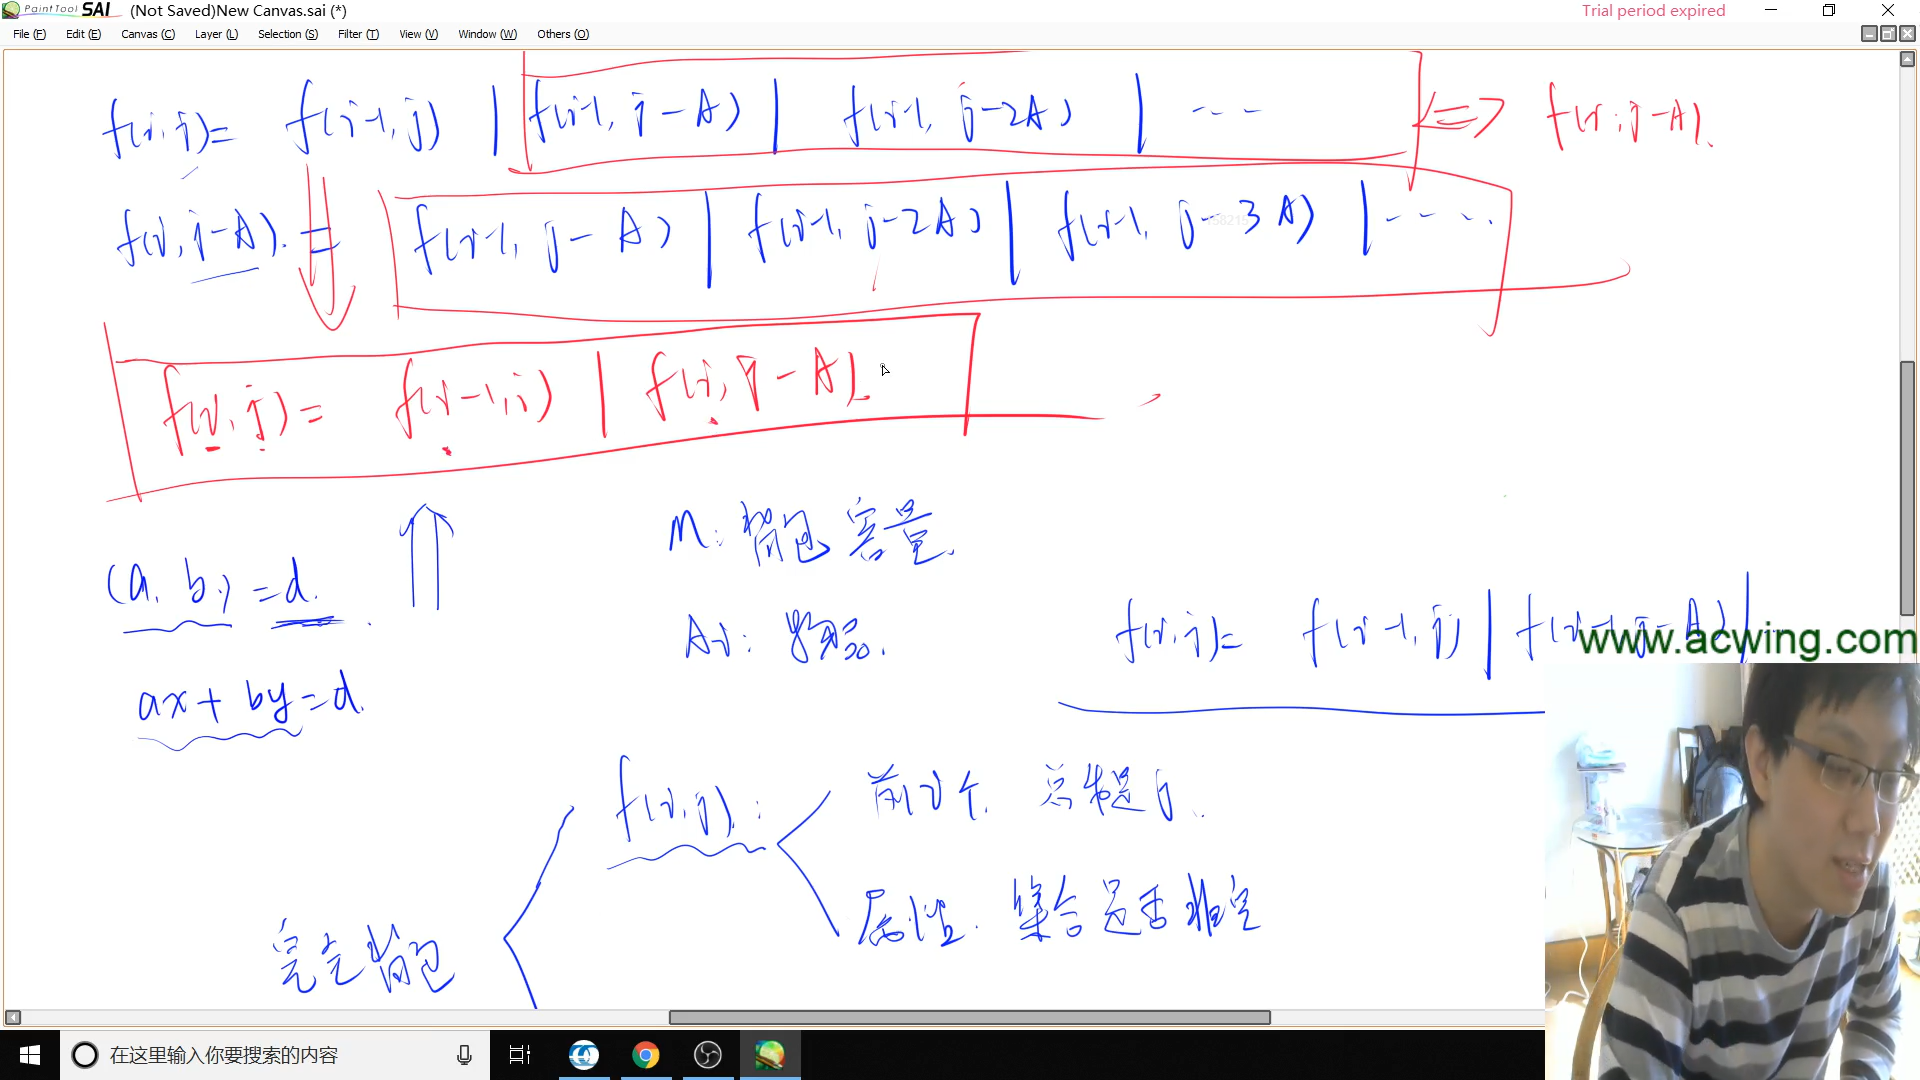 PaintTool SAI (Not Saved)New Canvas.sai (*) Trial period expired
File (F) Edit (E) Canvas (C) Layer (L) Selection (S) Filter (T) View (V) Window (W) Others (O)
f(i,j)= f(i-1,j) | f(i-1, j-A) | f(i-1, j-2A) | --- <=> f(i,j-A).
f(i,j-A). = f(i-1, j-A) | f(i-1, j-2A) | f(i-1, j-3A) | ----.
f(i,j)= f(i-1,j) | f(i,j-A).
M: 背包容量.
(a, b) = d.
Ai: 物品.
f(i,j)= f(i-1,j) | f(i-1,j-A) |
www.acwing.com
ax + by = d.
f(i,j): 前i个. 总和是j.
属性. 集合是否非空
完全背包
在这里输入你要搜索的内容